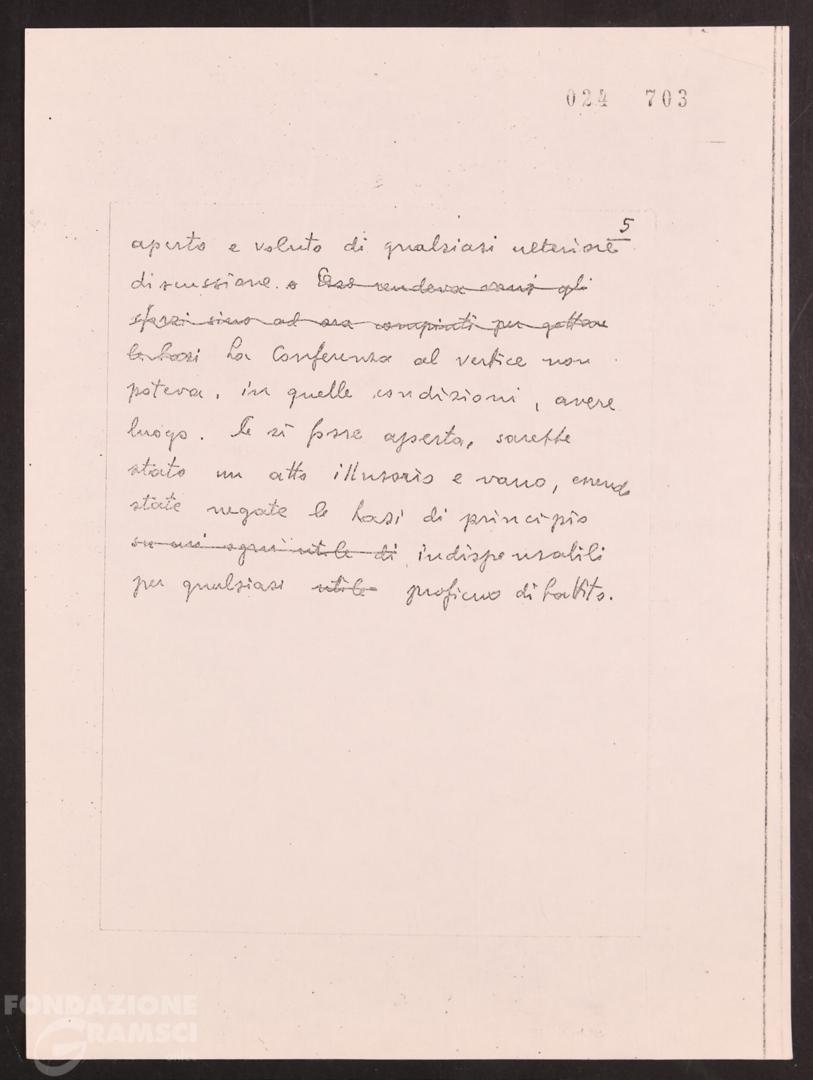 024 703
5
aperto e voluto di qualsiasi ulteriore
discussione. o Esso rendeva vani gli
sforzi sino ad ora compiuti per gettare
le basi La Conferenza al vertice non
poteva, in quelle condizioni, avere
luogo. Se si fosse aperta, sarebbe
stato un atto illusorio e vano, essendo
state negate le basi di principio
su cui ogni utile di indispensabili
per qualsiasi utile proficuo dibattito.
FONDAZIONE
GRAMSCI